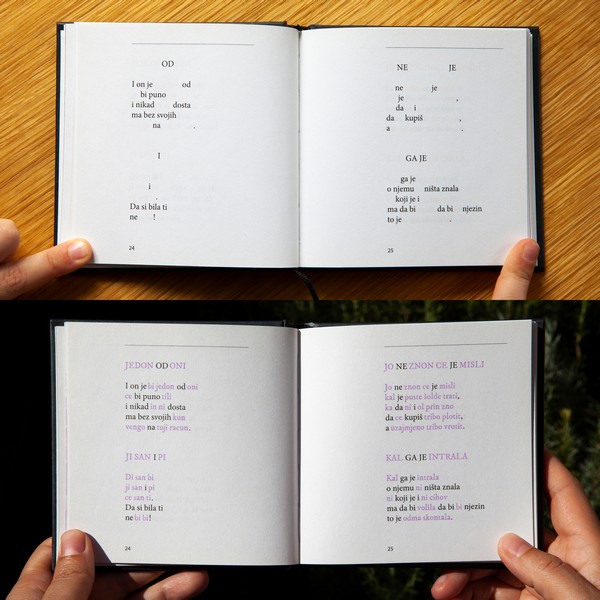 OD
I on je od
bi puno
i nikad dosta
ma bez svojih
na .
I
i
.
Da si bila ti
ne !
24
NE JE
ne je
je ,
da i
da kupiš ,
a .
GA JE
ga je
o njemu ništa znala
koji je i
ma da bi da bi njezin
to je .
25
JEDON OD ONI
I on je bi jedon od oni
ce bi puno tili
i nikad in ni dosta
ma bez svojih kun
vengo na tuji racun.
JI SAN I PI
Di san bi
ji san i pi
ce san ti.
Da si bila ti
ne bi bi!
24
JO NE ZNON CE JE MISLI
Jo ne znon ce je misli
kal je poste šolde strati,
ka da ni i ol prin zno
da ce kupiš tribo plotit,
a uzajmjeno tribo vrotit.
KAL GA JE INTRALA
Kal ga je intrala
o njemu ni ništa znala
ni koji je i ni cihov
ma da bi volila da bi bi njezin
to je odma skontala.
25